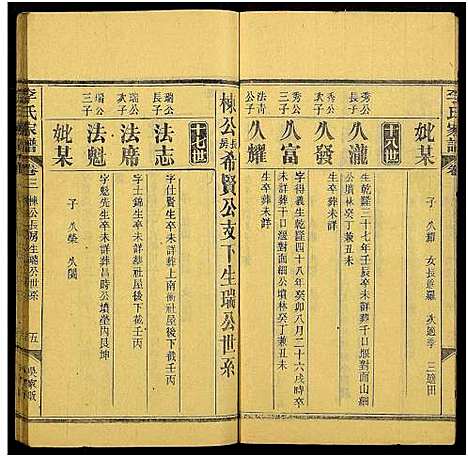 李氏家譜
棟公長房希賢公支下生瑞公世系
十七世
瑞公長子
法志
字仕賢生卒未詳葬上南衝社屋後下截壬丙
武子
法席
字士錦生卒未詳葬社屋後下截壬丙
瑞公三子
法魁
字魁先生卒未詳葬昌時公墳塋內艮坤
妣某
子 久榮 久閱
李氏家譜
卷三
棟公長房生瑞公世系
五
十八世
秀公長子
久瀧
生乾隆三十七年壬辰卒未詳葬千日堰對面山細公墳林癸丁兼丑未
秀公武子
久發
生卒葬未詳
秀公三子
久富
字得義生乾隆四十八年癸卯八月二十六戌時卒未詳葬千日堰對面細公墳林癸丁兼丑未
法青公子
久耀
生卒葬未詳
妣某
子 久耀 女長適羅 次適李 三適田